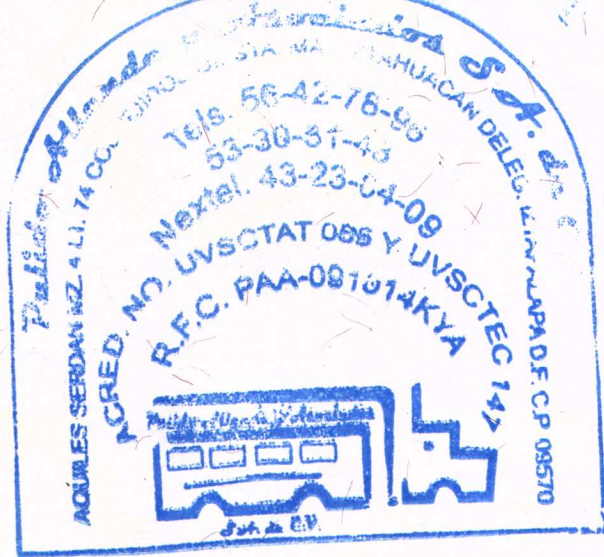 Pulido Allende y Asociados S.A. de C
AQUILES SERDAN MZ. 4 LT. 74 COL. STA. MA. AHUACAN DELEG. IZTAPALAPA D.F. C.P 09570
Tels. 56-42-78-90
53-30-31-43
Nextel. 43-23-04-09
ACRED. NO. UVSCTAT 066 Y UVSCTEC 147
R.F.C. PAA-091014KYA
S.A. de C.V.